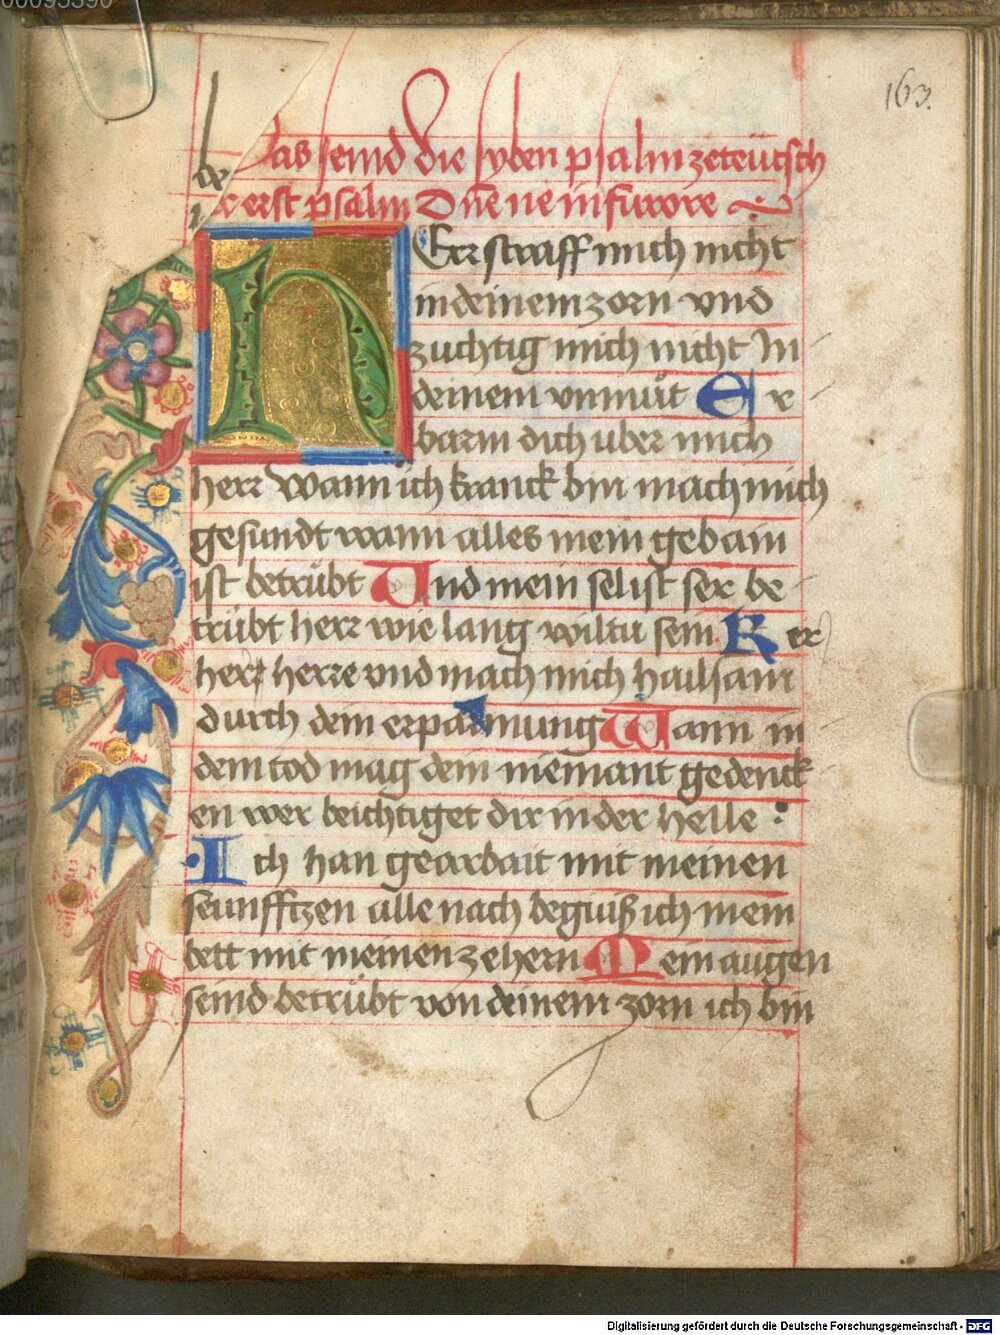 00095390
163.
Das seind die syben psalm zeteütsch
er erst psalm Dñe ne in furore
HErr straff mich nicht
in deinem zorn vnd
zuchtig mich nicht In
deinem vnmüt Er
barm dich uber mich
herr Wann ich kranck bin mach mich
gesundt wann alles mein gebain
ist betrübt Und mein sel ist ser be
trübt herr wie lang wiltu sein Ker
herr herre vnd mach mich hailsam
durch dein erparmung Wann in
dem tod mag dein niemant gedenck
en wer beichtiget dir in der helle :
Ich han gearbait mit meinen
seunfftzen alle nach beguiß ich mein
bett mit meinen zehern Mein augen
seind betrübt von deinem zorn ich bin
Digitalisierung gefördert durch die Deutsche Forschungsgemeinschaft - DFG